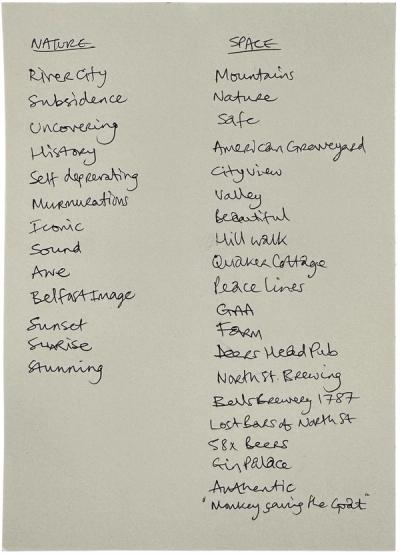 NATURE
River City
Subsidence
Uncovering
History
Self deprerating
Murmurations
Iconic
Sound
Awe
Belfast Image
Sunset
Sunrise
Stunning
SPACE
Mountains
Nature
Safe
American Graveyard
City view
Valley
Beautiful
Hill walk
Quaker Cottage
Peace lines
GAA
FARM
Deers Head Pub
North St. Brewing
Bells Brewery 1787
Lost Bars of North St
58x Beers
Gin Palace
Authentic
"Monkey saving the Goat"